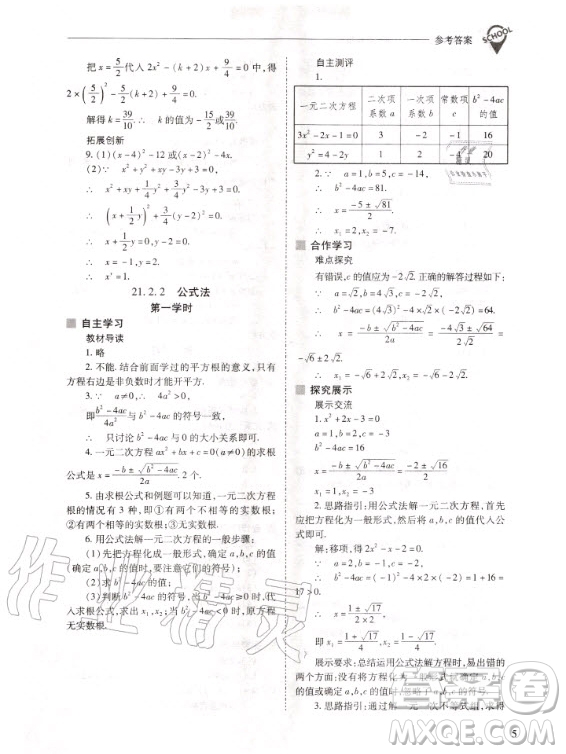 参考答案
SCHOOL
把 x=5/2 代入 2x²-(k+2)x+9/4=0,得
2×(5/2)²-(k+2)x+9/4=0.
解得 k=39/10.∴ k 的值为
拓展创新
9. (1)(x-4)²-12 或(x-2)
(2)∵
∴
∴
∴
∴ x=-1,y=2.
∴
21.2.2 公式法
第一学时
自主学习
教材导读
1. 略
2. 不能. 结合前面学过的平方根的意义,只有
方程右边是非负数时才能开平方.
3. ∵ a≠0,∴ 4a²>0,
即 (b²-4ac)/4a² 与 b²-4ac 的符号一致,
∴ 只讨论 b²-4ac 与 0 的大小关系即可.
4. 一元二次方程 ax²+bx+c=0(a≠0)的求根
公式是 x=(-b±√(b²-4ac))/2a. 2 个.
5. 由求根公式和前面例题可以知道,一元二次方程
根的情况有 3 种,即①有两个不相等的实数根;
②有两个相等的实数根;③没有实数根.
6. 用公式法解一元二次方程的一般步骤:
(1)先把方程化成一般形式,确定 a,b,c 的值
(2)求出 b²-4ac 的值;
(3)判断若 b²-4ac≥0 时,把 a,b,c 的值代
入求根公式,求出 x₁,x₂;当 b²-4ac<0 时,原方程
无实数根.
自主测评
1.
一元二次方程 二次项系数 a 一次项系数 b 常数项 c b²-4ac 的值
3x²-2x-1=0 3 -2 -1 16
y²=4-2y 1 2 -4 20
2. ∵ a=1,b=5,c=-14,
∴ b²-4ac=81.
∴ x=(-5±√81)/2.
∴ x₁=2,x₂=-7.
合作学习
难点探究
有错误,c 的值应为-2√2. 正确的解答过程如下:
∵ a=√2,b=4√3,c=-2√2,
∴ b²-4ac=(4√3)²-4×√2×(-2√2)=64.
∴ x=(-b±√(b²-4ac))/2a=(-4√3±√64)/2√2=
-√6±2√2.
∴ x₁=-√6+2√2,x₂=-√6-2√2.
探究展示
展示交流
1. x²+2x-3=0
∵ a=1,b=2,c=-3,
b²-4ac=16,
∴ x=(-b±√(b²-4ac))/2a=(-2±√16)/2
∴ x₁=1,x₂=-3.
2. 思路指引:用公式法解一元二次方程,首先
应把方程化为一般形式,然后把 a,b,c 的值代入公
式即可.
解:移项,得 2x²-x-2=0.
∵ a=2,b=-1,c=-2,
∴ b²-4ac=(-1)²-4×2×(-2)=
17>0.
∴ x=(1±√17)/(2×2)=(1±√17)/4.
即 x₁=(1+√17)/4,x₂=(1-√17)/4.
展示要求:总结运用公式法解方程时,易出错的
两个方面:没有将方程化为一般式就确定 a,b,c
的值或确定 a,b,c 的值时忽略了 a,b,c 的符号.
3. 思路指引:通过解一元一次不等式组,求得
5
作业精灵
答案圈
MXQE.COM